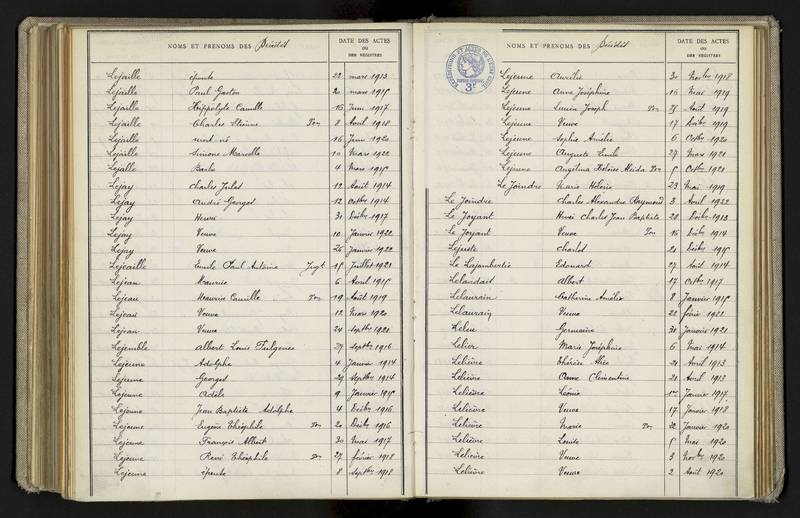 NOMS ET PRENOMS DES Décédés
DATE DES ACTES
OU
DES REGISTRES
Lejaille épouse 22 mars 1913
Lejaille Paul Gaston 20 mars 1915
Lejaille Hippolyte Camille 16 Juin 1917
Lejaille Charles Etienne Ton 8 Avril 1918
Lejaille mort né 16 Juin 1920
Lejaille Simone Marcelle 10 Mars 1922
Lejalle Barbe 4 Mars 1915
Lejay Charles Jules 12 Août 1914
Lejay André Georges 12 Octbre 1914
Lejay Hervé 31 Décbre 1917
Lejay Veuve 10 Janvier 1922
Lejay Veuve 26 Janvier 1922
Lejcaille Emile Paul Antoine Jugt 15 Juillet 1921
Lejean Maurice 6 Avril 1915
Lejean Maurice Camille Ton 19 Août 1919
Lejean Veuve 12 Mars 1920
Lejean Veuve 24 Septbre 1921
Lejemble Albert Louis Fulgence 29 Septbre 1916
Lejeune Adolphe 4 Janvier 1914
Lejeune Georges 29 Septbre 1914
Lejeune Adèle 9 Janvier 1915
Lejeune Jean Baptiste Adolphe 4 Décbre 1916
Lejeune Eugène Théophile Ton 20 Décbre 1916
Lejeune François Albert 30 Mai 1917
Lejeune René Théophile Ton 27 février 1918
Lejeune épouse 8 Septbre 1918
NOMS ET PRENOMS DES Décédés
DATE DES ACTES
OU
DES REGISTRES
3f
Lejeune Aurélie 30 Novbre 1918
Lejeune Anne Joséphine 16 Mai 1919
Lejeune Lucien Joseph Ton Août 1919
Lejeune Veuve 17 Décbre 1919
Lejeune Sophie Amélie 6 Octbre 1920
Lejeune Auguste Emile 27 Mars 1921
Lejeune Angelina Héloïse Ton 5 Octbre 1921
Le Joindre Marie Hélène 23 Mai 1919
Le Joindre Charles Alexandre Raymond 3 Avril 1922
Le Joyant Henri Charles Jean Baptiste 28 Décbre 1913
Le Joyant Veuve Ton 16 Décbre 1914
Lejuste Charles 21 Décbre 1915
Le Lajambertie Edouard 27 Août 1914
Lelandais Albert 17 Octbre 1917
Lelaurain Catherine Amélie 8 Janvier 1915
Lelaurain Veuve 22 févier 1922
Leleu Germaine 30 Janvier 1921
Lelier Marie Joséphine 6 Mai 1914
Lelièvre Thérèse Alice 21 Avril 1913
Lelièvre Anne Clémentine 21 Avril 1913
Lelièvre Léonie 1er Janvier 1917
Lelièvre Veuve 17 Janvier 1918
Lelièvre Marie Ton Janvier 1920
Lelièvre Louise 5 Mai 1920
Lelièvre Veuve 3 Novbre 1920
Lelièvre Veuve 2 Août 1920